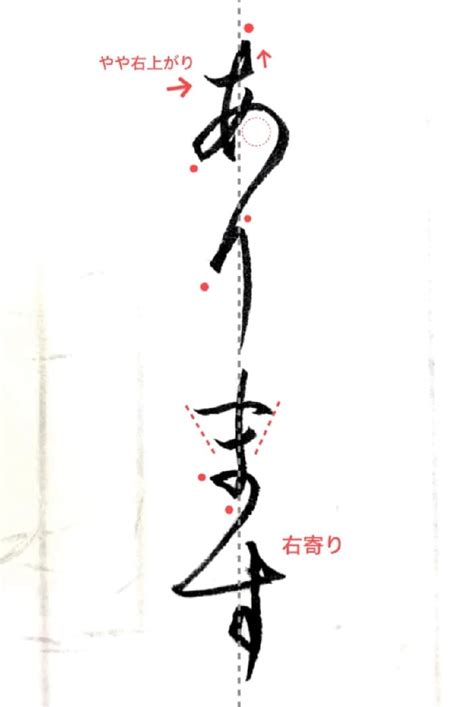 やや右上がり
あります
右寄り